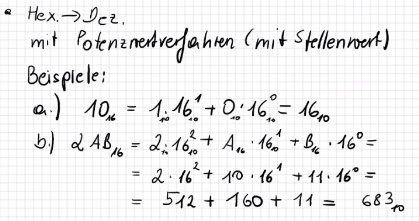 • Hex. → Dez.
mit Potenzwertverfahren (mit Stellenwert)
Beispiele:
a.) 10₁₆ = 1₁₀·16₁₀¹ + 0₁₀·16₁₀⁰ = 16₁₀
b.) 2AB₁₆ = 2₁₀·16₁₀² + A₁₆·16₁₀¹ + B₁₆·16⁰ =
= 2·16² + 10·16¹ + 11·16⁰ =
= 512 + 160 + 11 = 683₁₀